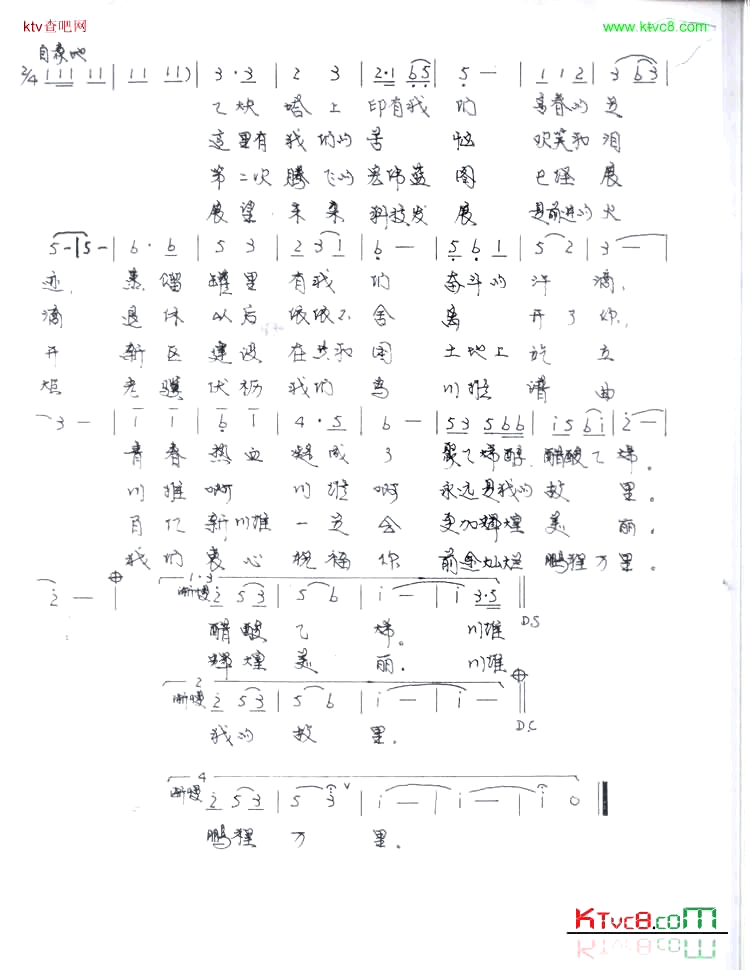 ktv查吧网
www.ktvc8.com
自豪地
2/4 1 1 1 1 1 | 1 1 1 1 ) | 3 · 3 | 2 3 | 2·1 6 5 | 5 — | 1 1 2 | 3 6 3 |
乙炔塔上印有我们 青春的足
这里有我们的苦恼 欢笑和泪
第二次腾飞的宏伟蓝图 已经展
展望未来科技发展 是前进的火
5 — | 5 — | 6 · 6 | 5 3 | 2 3 1 | 6 — | 5 6 1 | 5 2 | 3 — |
迹,蒸馏罐里有我们 奋斗的汗滴,
滴 退休以后依依不舍离开了你,
开 新区建设在共和国土地上
炬 老骥伏枥我们为川维谱曲
3 — | 1 1 | 6 1 | 4 · 5 | 6 — | 5 3 5 6 6 | i 5 6 i | 2 — |
青春热血凝成了 聚乙烯醇 醋酸乙烯。
川维啊 川维啊 永远是我的故里。
新川维一定会更加辉煌美丽。
我们衷心祝福你 前途灿烂 鹏程万里。
2 — |
1. 3
渐慢 2 5 3 | 5 6 | i — | i 3·5 ||
D.S
醋酸乙烯。 川维
辉煌美丽。 川维
2
渐慢 2 5 3 | 5 6 | i — | i — ||
D.C
我的故里。
4
渐慢 2 5 3 | 5 3 | i — | i — | i 0 ||
鹏程万里。
KTvc8.com